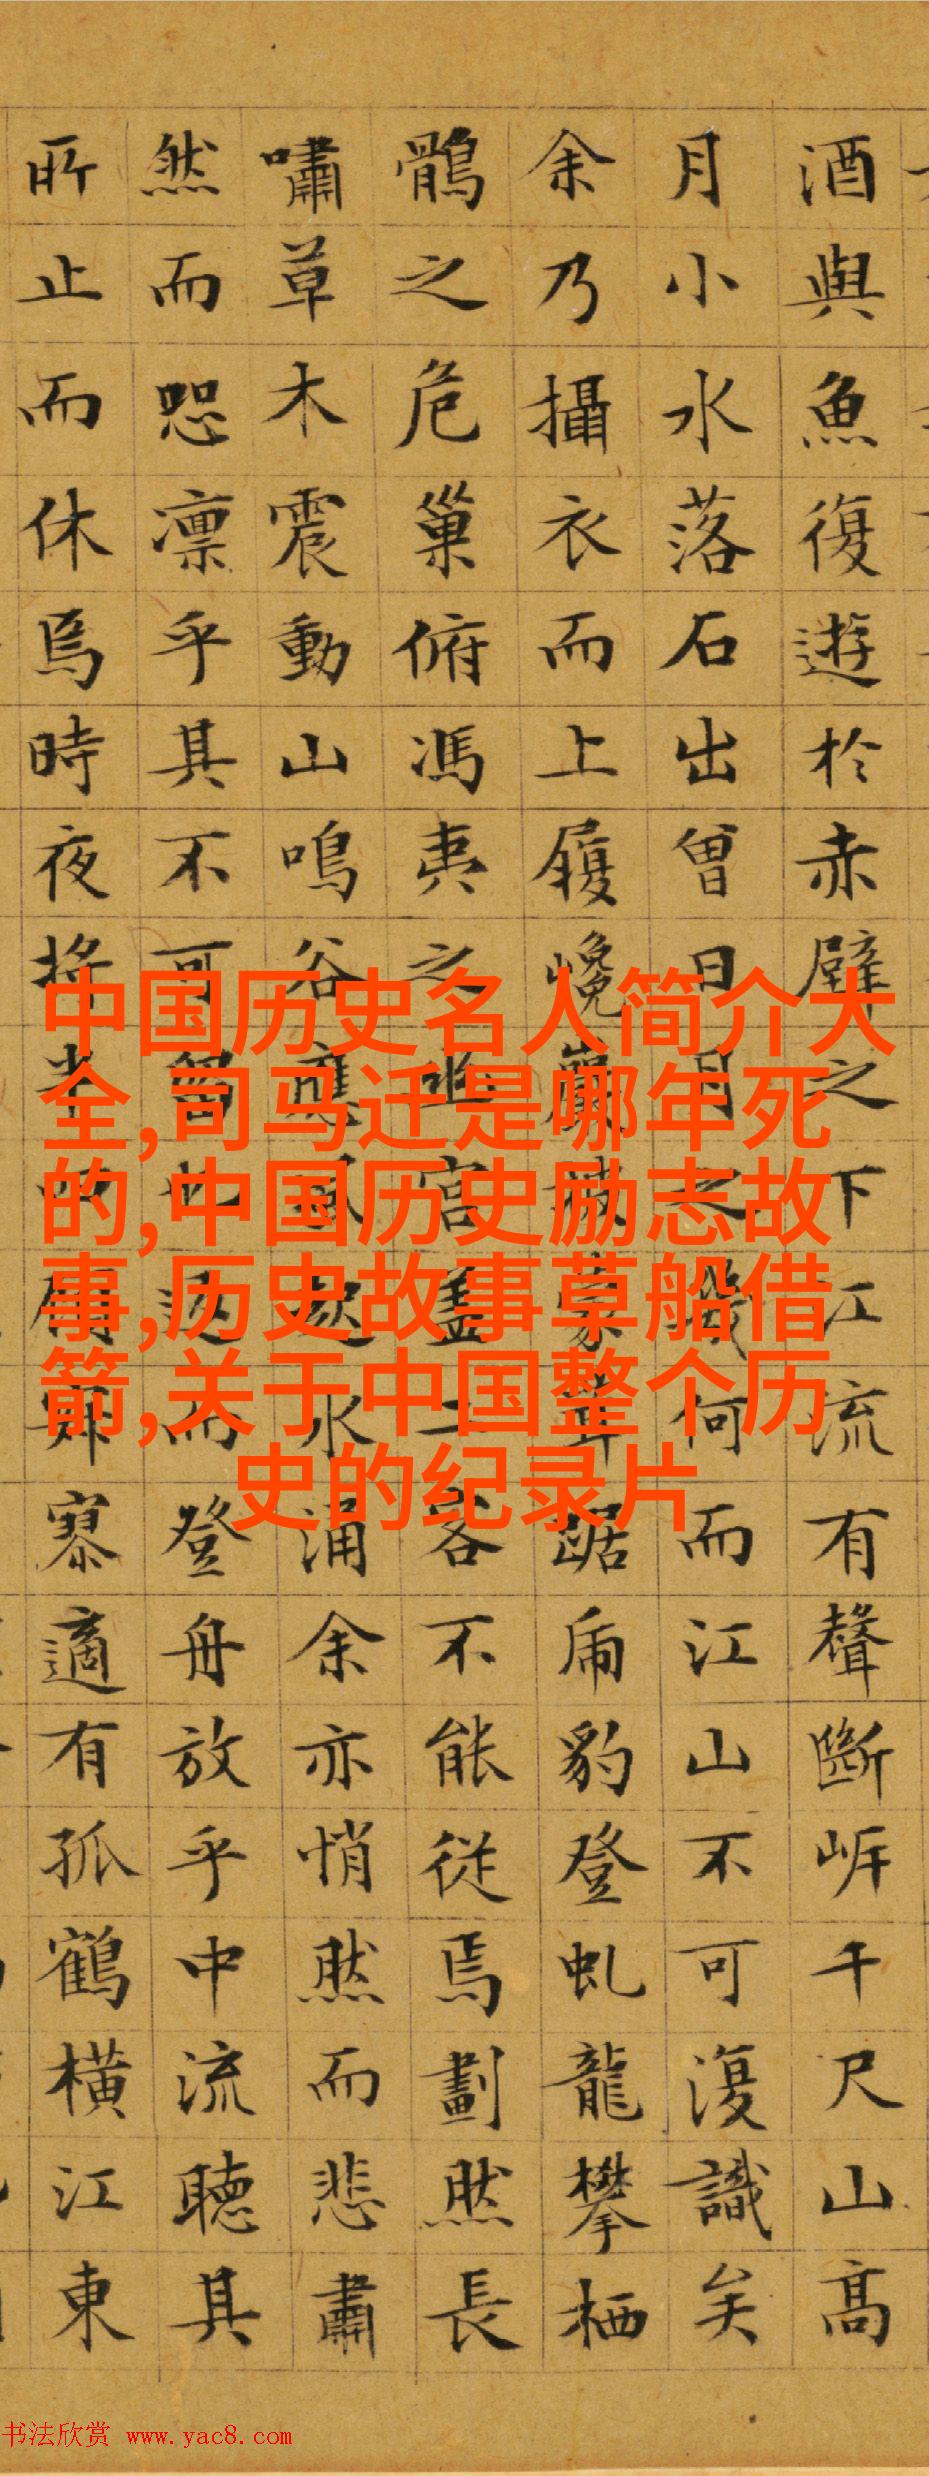 酒與魚復遊於赤壁之下江流有聲斷岸千尺山高
月小水落石出曾日月之幾何而江山不可復識矣
余乃攝衣而上履巉巖披蒙茸踞虎豹登虬龍攀栖
鶻之危巢俯馮夷之幽宮蓋二客不能從焉劃然長
嘯草木震動山鳴谷應風起水涌余亦悄然而悲肅
然而恐凛乎其不可留也返而登舟放乎中流聽其
所止而休焉時夜將半四顧寂寥適有孤鶴橫江東
中国历史名人简介大
全,司马迁是哪年死
的,中国历史励志故
事,历史故事草船借
箭,关于中国整个历
史的纪录片
书法欣赏 www.yac8.com